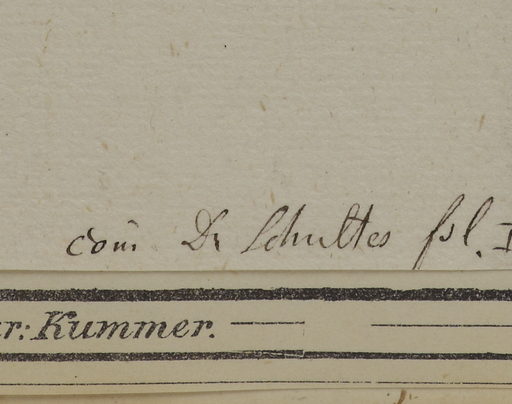 com. Dr Schultes fil.
ar: Kummer.